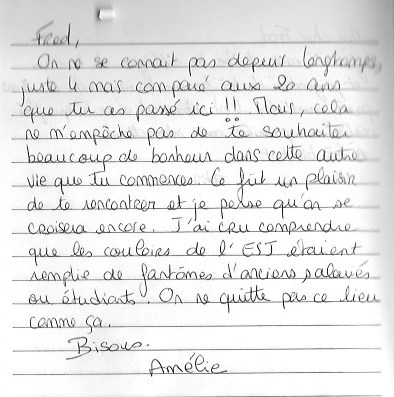 Fred,
On ne se connait pas depuis longtemps,
juste 4 mois comparé aux 20 ans
que tu as passé ici !! Mais, cela
ne m'empêche pas de te souhaiter
beaucoup de bonheur dans cette autre
vie que tu commences. Ce fût un plaisir
de te rencontrer et je pense qu'on se
croisera encore. J'ai cru comprendre
que les couloirs de l'EST étaient
remplie de fantômes d'anciens salariés
ou étudiants. On ne quitte pas ce lieu
comme ça.
Bisous.
Amélie